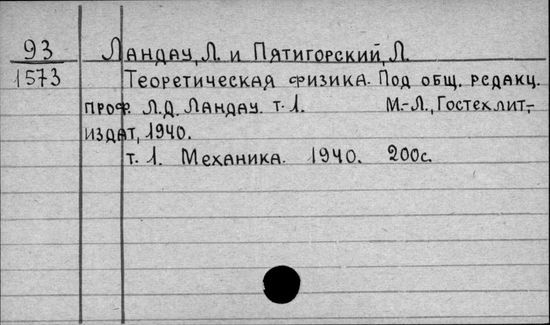 93 Ландау, Л. и Пятигорский, Л.
1573 Теоретическая физика. Под общ. редакц.
проф. Л.Д. Ландау. т.1. М.-Л., Гостехлит-
издат, 1940.
т.1. Механика. 1940. 200с.